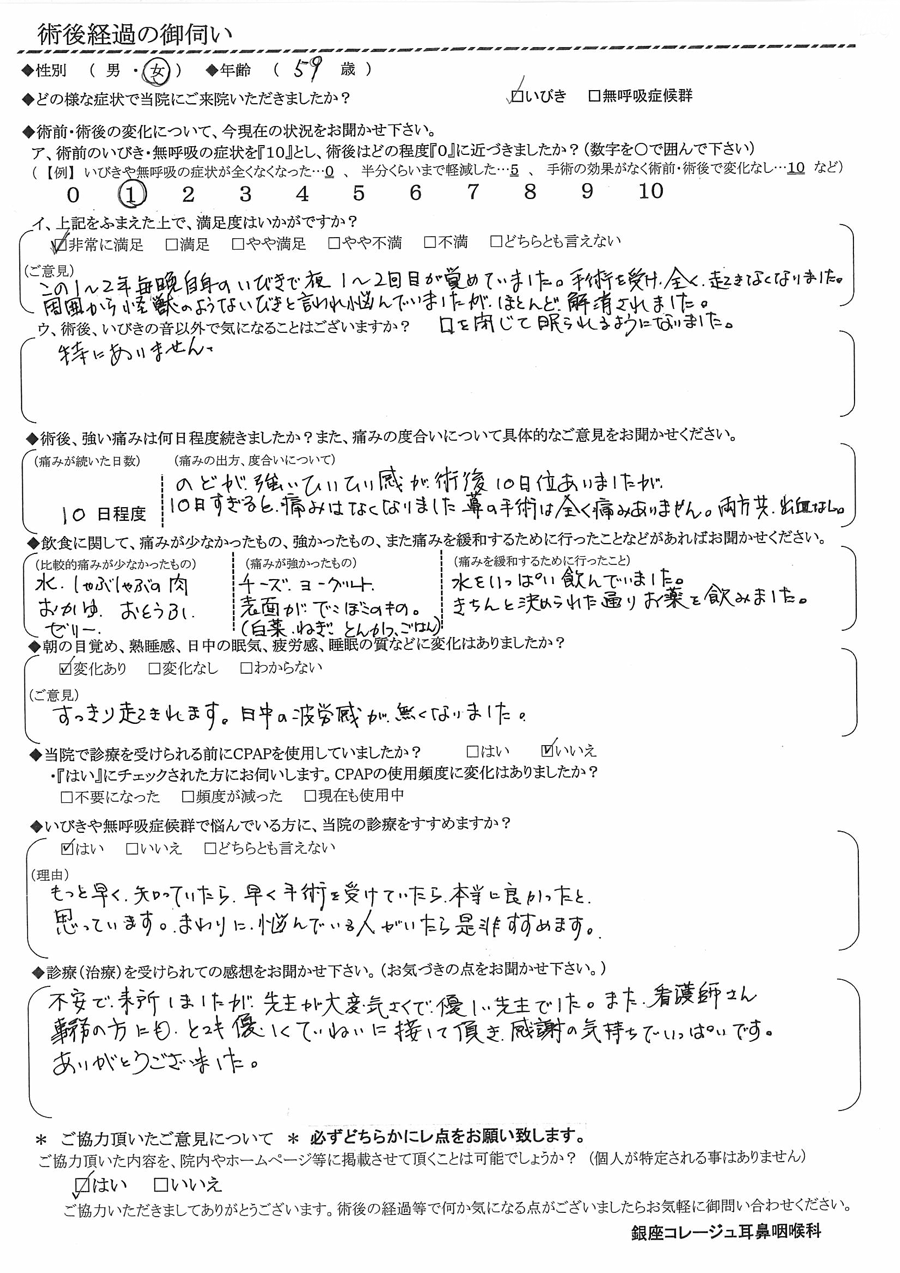 術後経過の御伺い
◆性別 （ 男 ・ 女 ） ◆年齢 （ 59 歳 ）
◆どの様な症状で当院にご来院いただきましたか？ ☑いびき □無呼吸症候群
◆術前・術後の変化について、今現在の状況をお聞かせ下さい。
ア、術前のいびき・無呼吸の症状を『10』とし、術後はどの程度『0』に近づきましたか？（数字を〇で囲んで下さい）
（【例】 いびきや無呼吸の症状が全くなくなった…0 、 半分くらいまで軽減した…5 、 手術の効果がなく術前・術後で変化なし…10 など）
0 1 2 3 4 5 6 7 8 9 10
イ、上記をふまえた上で、満足度はいかがですか？
☑非常に満足 □満足 □やや満足 □やや不満 □不満 □どちらとも言えない
（ご意見）
この1～2年毎晩自身のいびきで夜 1～2回目が覚めていました。手術を受け、全く起きなくなりました。
周囲から怪獣のようないびきと言われ悩んでいましたが、ほとんど解消されました。
ウ、術後、いびきの音以外で気になることはございますか？ 口を閉じて眠られるようになりました。
特にありません。
◆術後、強い痛みは何日程度続きましたか？また、痛みの度合いについて具体的なご意見をお聞かせください。
（痛みが続いた日数） （痛みの出方、度合いについて）
のどが、強いひりひり感が、術後10日位ありましたが
10日程度 10日すぎると、痛みはなくなりました 鼻の手術は全く痛みありません。両方共、出血なし。
◆飲食に関して、痛みが少なかったもの、強かったもの、また痛みを緩和するために行ったことなどがあればお聞かせください。
（比較的痛みが少なかったもの） （痛みが強かったもの） （痛みを緩和するために行ったこと）
水、しゃぶしゃぶの肉 チーズ、ヨーグルト、 水をいっぱい飲んでいました。
おかゆ、おとうふ、 表面がでこぼこのもの。 きちんと決められた通りお薬を飲みました。
ゼリー、 (白菜、ねぎ、とんかつ、ごはん)
◆朝の目覚め、熟睡感、日中の眠気、疲労感、睡眠の質などに変化はありましたか？
☑変化あり □変化なし □わからない
（ご意見）
すっきり起きれます。日中の疲労感が、無くなりました。
◆当院で診療を受けられる前にCPAPを使用していましたか？ □はい ☑いいえ
・『はい』にチェックされた方にお伺いします。CPAPの使用頻度に変化はありましたか？
□不要になった □頻度が減った □現在も使用中
◆いびきや無呼吸症候群で悩んでいる方に、当院の診療をすすめますか？
☑はい □いいえ □どちらとも言えない
（理由）
もっと早く、知っていたら、早く手術を受けていたら、本当に良かったと、
思っています。まわりに、悩んでいる人がいたら是非すすめます。
◆診療（治療）を受けられての感想をお聞かせ下さい。（お気づきの点をお聞かせ下さい。）
不安で、来所しましたが、先生が大変気さくで、優しい先生でした。また、看護師さん
事務の方にも、とても優しくていねいに接して頂き、感謝の気持ちでいっぱいです。
ありがとうございました。
＊ ご協力頂いたご意見について ＊ 必ずどちらかにレ点をお願い致します。
ご協力頂いた内容を、院内やホームページ等に掲載させて頂くことは可能でしょうか？ （個人が特定される事はありません）
☑はい □いいえ
ご協力いただきましてありがとうございます。術後の経過等で何か気になる点がございましたらお気軽に御問い合わせください。
銀座コレージュ耳鼻咽喉科